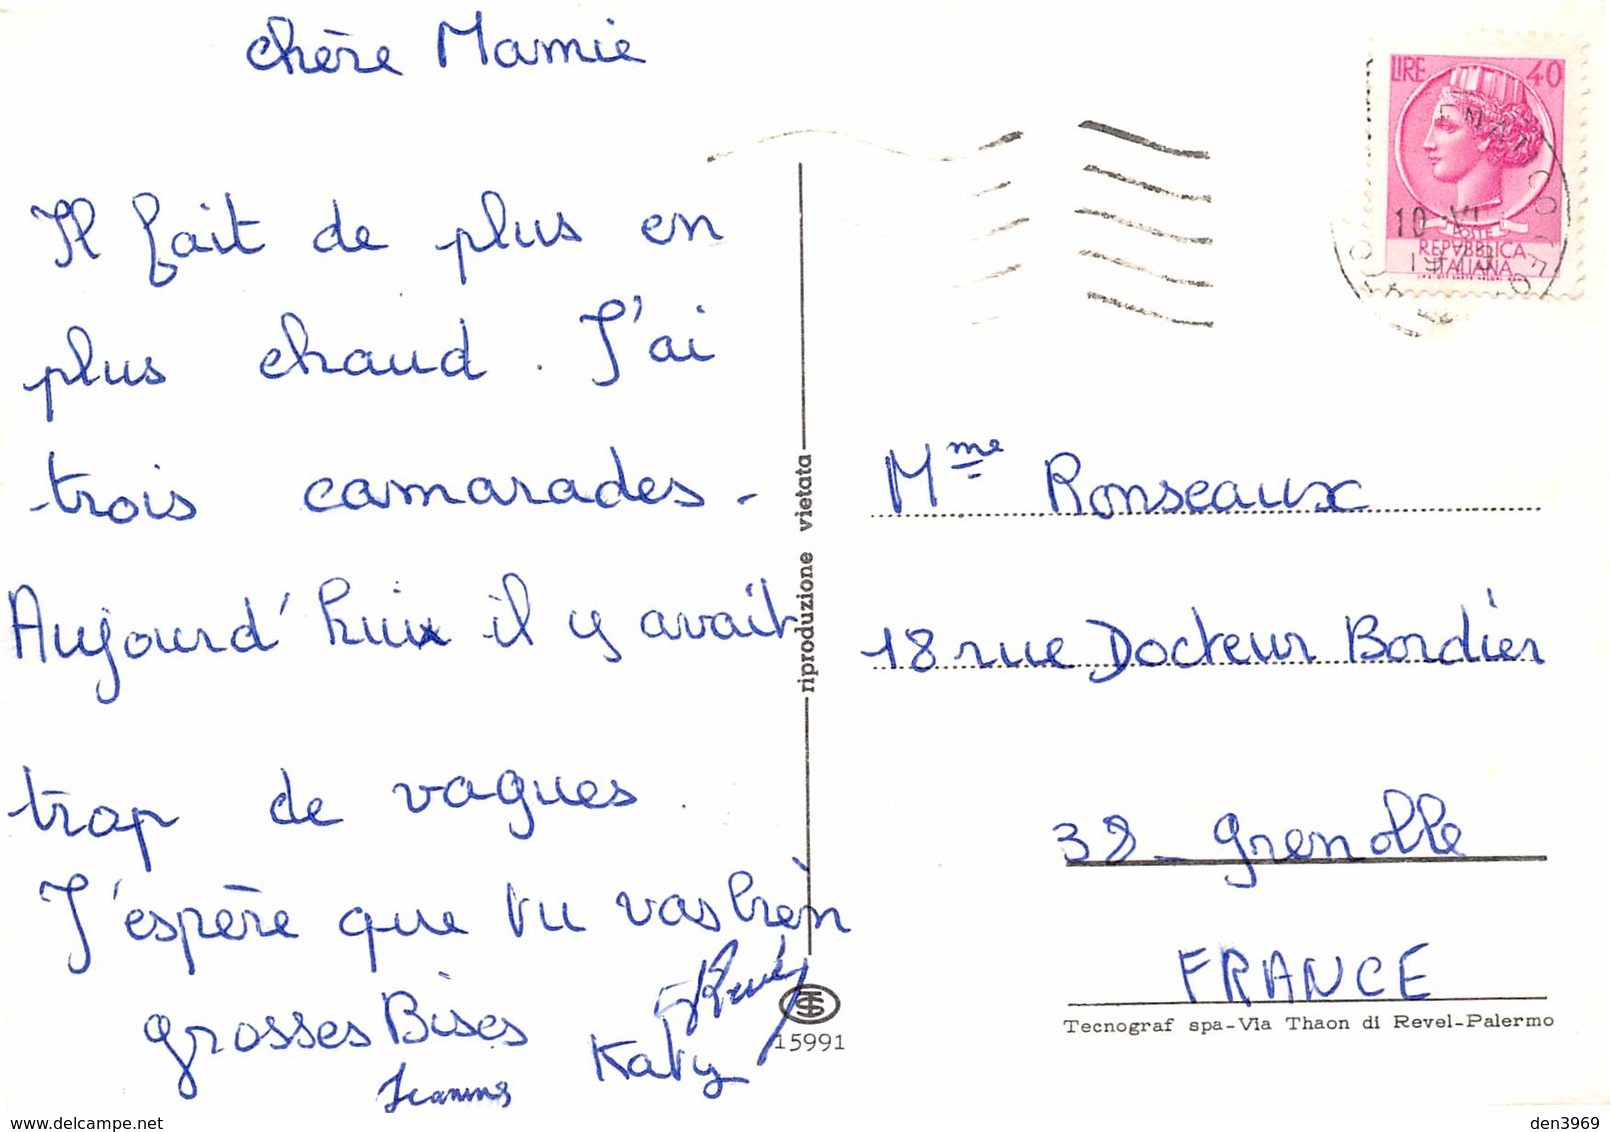 chère Mamie
Il fait de plus en
plus chaud. J'ai
trois camarades.
Aujourd'hui il y avait
trop de vagues.
J'espère que tu vas bien
grosses Bises
René
Katy
Jeannine
LIRE 40
10 VI
POSTE
REPVBBLICA
ITALIANA
riproduzione vietata
Mme Ronseaux
18 rue Docteur Bordier
38 - Grenoble
FRANCE
15991
Tecnograf spa-Via Thaon di Revel-Palermo
den3969
www.delcampe.net